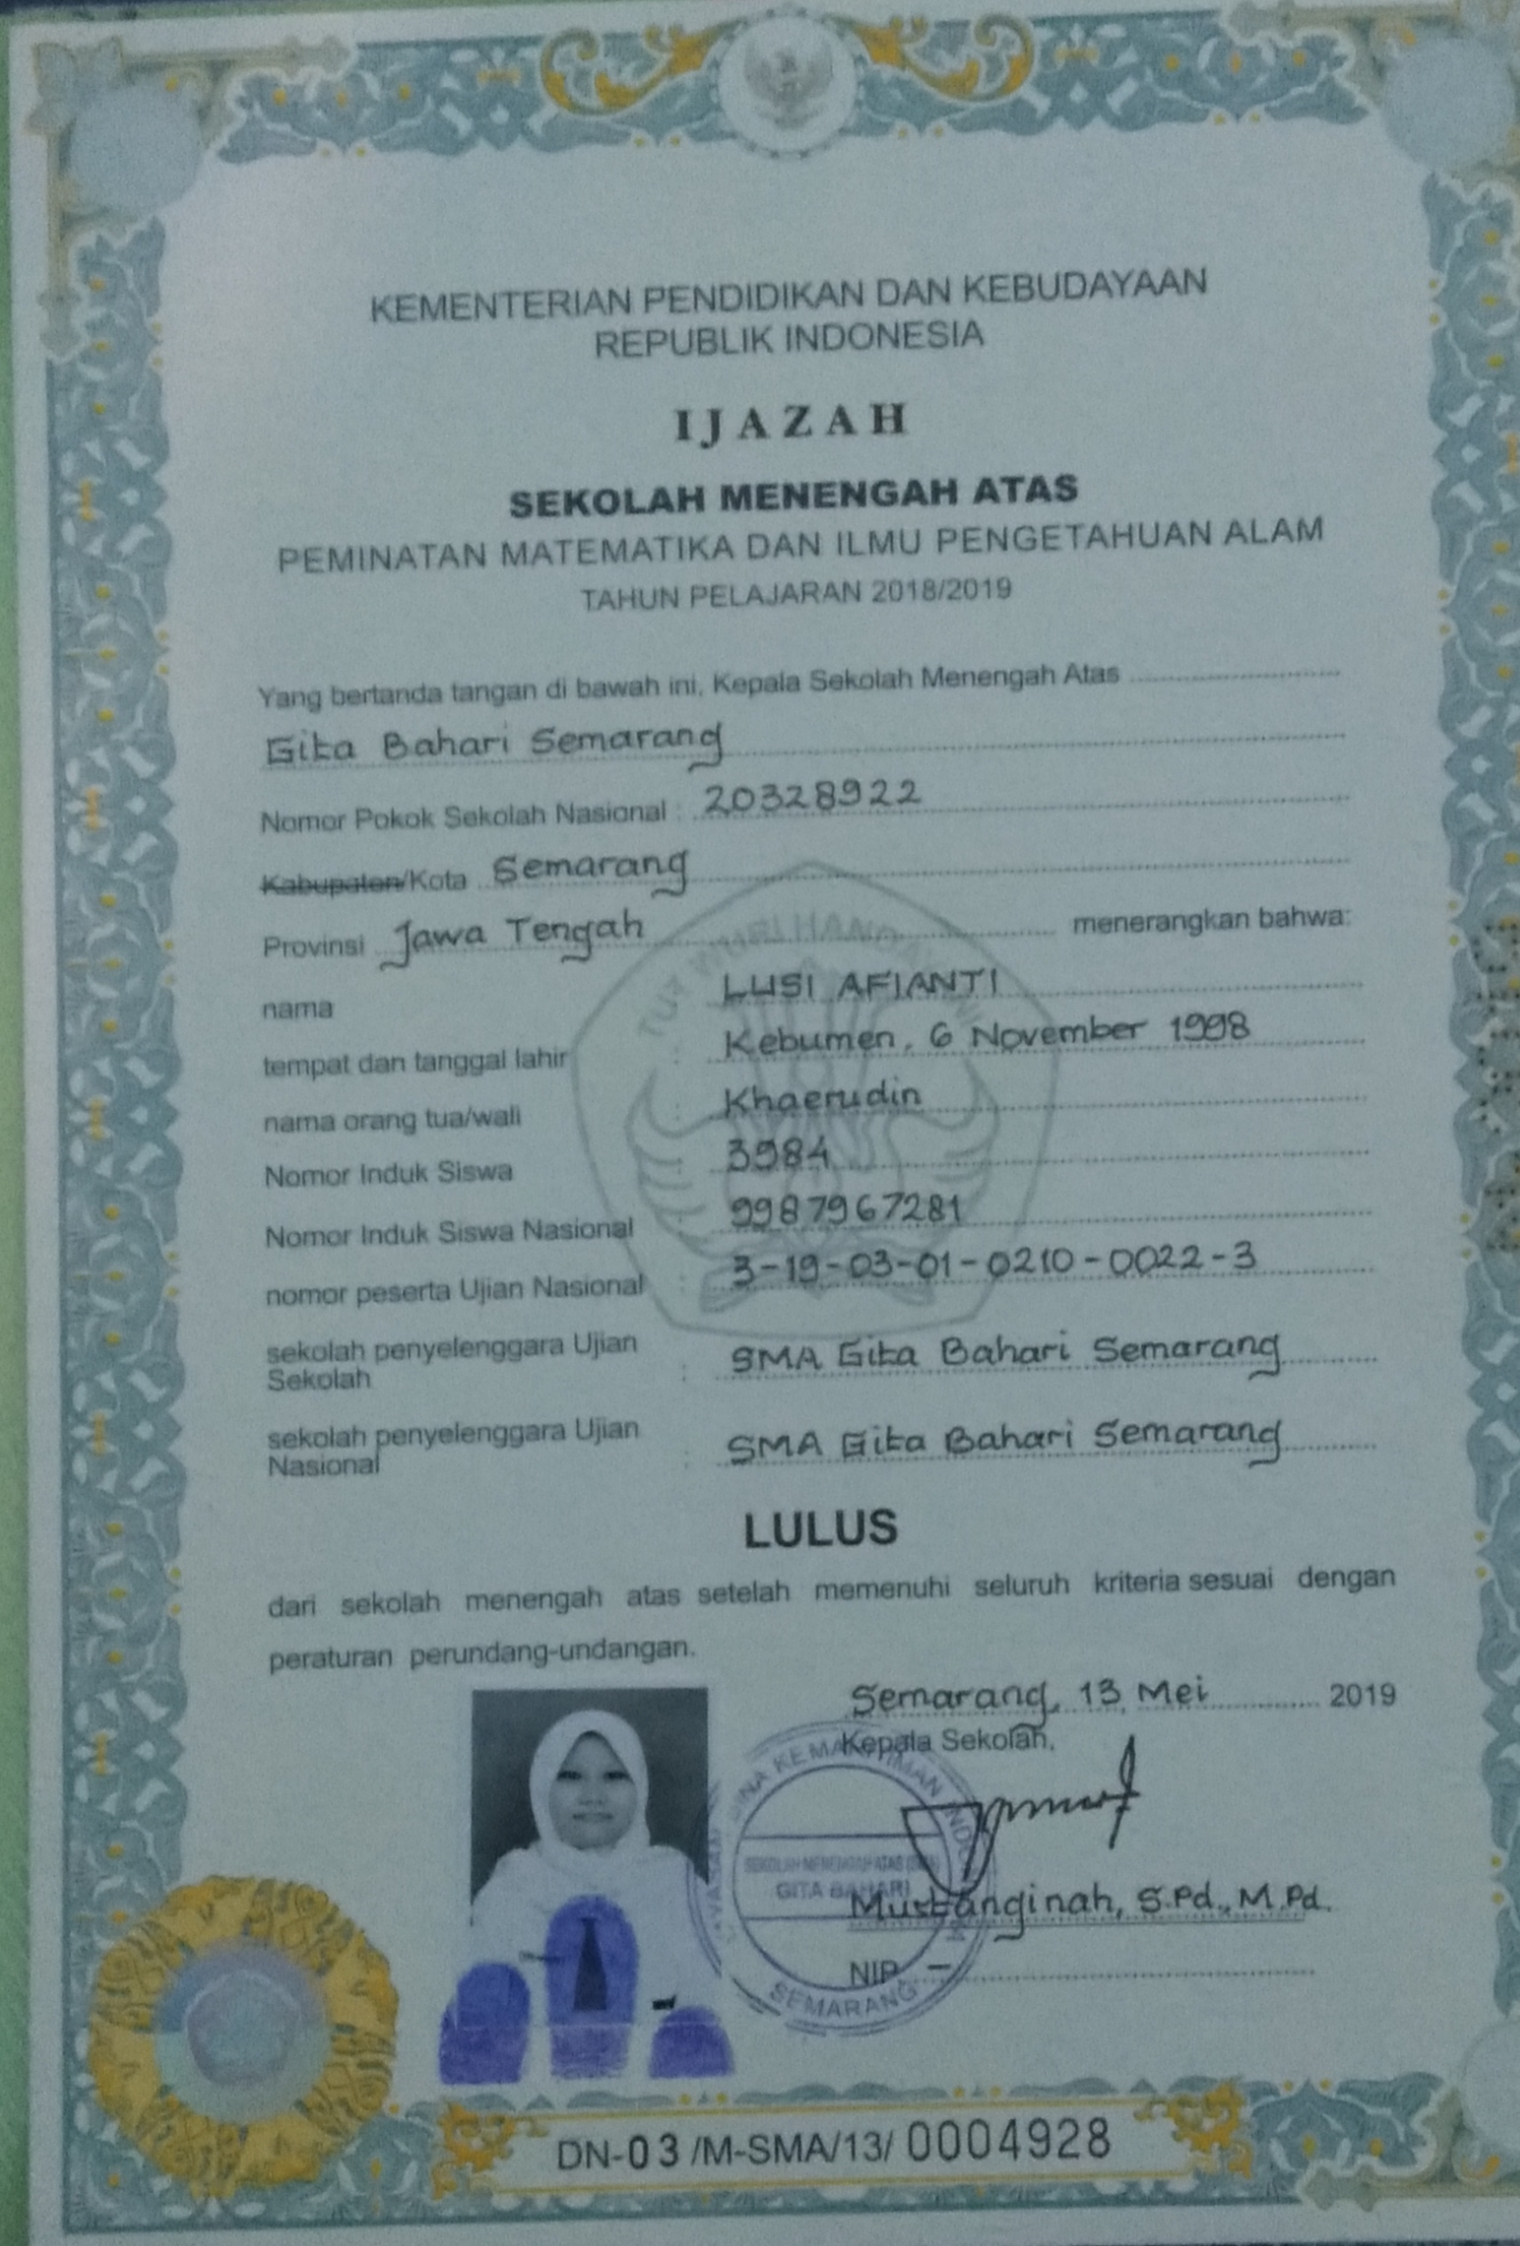 KEMENTERIAN PENDIDIKAN DAN KEBUDAYAAN
REPUBLIK INDONESIA
IJAZAH
SEKOLAH MENENGAH ATAS
PEMINATAN MATEMATIKA DAN ILMU PENGETAHUAN ALAM
TAHUN PELAJARAN 2018/2019
Yang bertanda tangan di bawah ini, Kepala Sekolah Menengah Atas
Gita Bahari Semarang
Nomor Pokok Sekolah Nasional : 20328922
Kabupaten/Kota Semarang
Provinsi Jawa Tengah menerangkan bahwa:
nama : LUSI AFIANTI
tempat dan tanggal lahir : Kebumen, 6 November 1998
nama orang tua/wali : Khaerudin
Nomor Induk Siswa : 3984
Nomor Induk Siswa Nasional : 9987967281
nomor peserta Ujian Nasional : 3-19-03-01-0210-0022-3
sekolah penyelenggara Ujian
Sekolah : SMA Gita Bahari Semarang
sekolah penyelenggara Ujian
Nasional : SMA Gita Bahari Semarang
LULUS
dari sekolah menengah atas setelah memenuhi seluruh kriteria sesuai dengan
peraturan perundang-undangan.
Semarang, 13 Mei 2019
Kepala Sekolah,
SEKOLAH MENENGAH ATAS (SMA)
GITA BAHARI
SEMARANG
Mustanginah, S.Pd., M.Pd.
NIP -
DN-03 /M-SMA/13/ 0004928